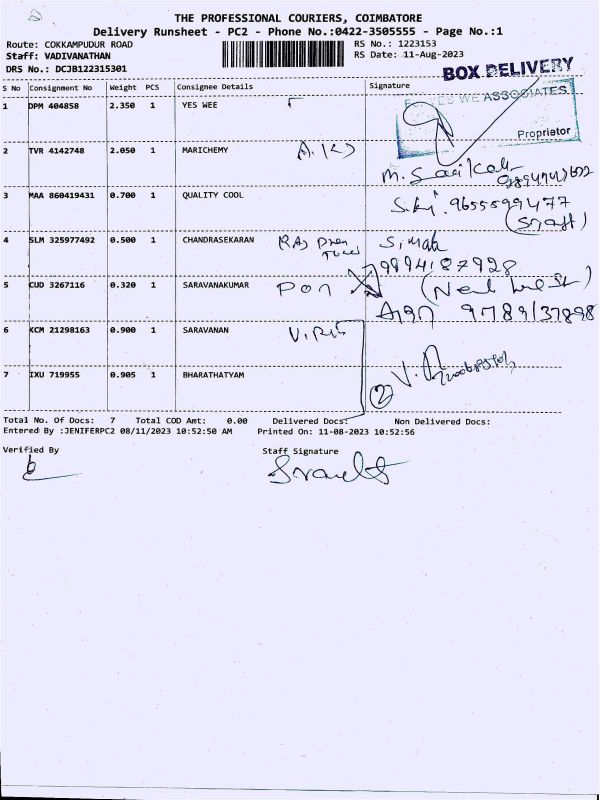 THE PROFESSIONAL COURIERS, COIMBATORE
Delivery Runsheet - PC2 - Phone No.:0422-3505555 - Page No.:1
Route: COKKAMPUDUR ROAD RS No.: 1223153
Staff: VADIVANATHAN RS Date: 11-Aug-2023
DRS No.: DCJB122315301
BOX DELIVERY
S No Consignment No Weight PCS Consignee Details Signature
YES WE ASSOCIATES
1 DPM 404858 2.350 1 YES WEE
Proprietor
2 TVR 4142748 2.050 1 MARICHEMY
3 MAA 860419431 0.700 1 QUALITY COOL
9655599477
(Staff)
4 SLM 325977492 0.500 1 CHANDRASEKARAN
9894187928
5 CUD 3267116 0.320 1 SARAVANAKUMAR
9789137898
6 KCM 21298163 0.900 1 SARAVANAN
7 IXU 719955 0.905 1 BHARATHATYAM
2
Total No. Of Docs: 7 Total COD Amt: 0.00 Delivered Docs: Non Delivered Docs:
Entered By :JENIFERPC2 08/11/2023 10:52:50 AM Printed On: 11-08-2023 10:52:56
Verified By Staff Signature